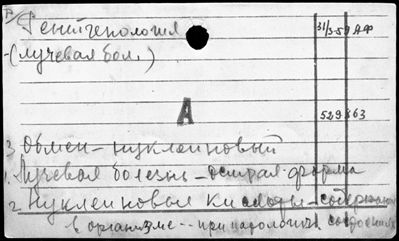 Р/Рентгенология 31/3-59 АФ
-(лучевая бол.)
А 529863
3. Обмен - нуклеиновый
1. Лучевая болезнь - острая форма
2. Нуклеиновая кислоты - содержание
в организме - - при патологич. состояниях